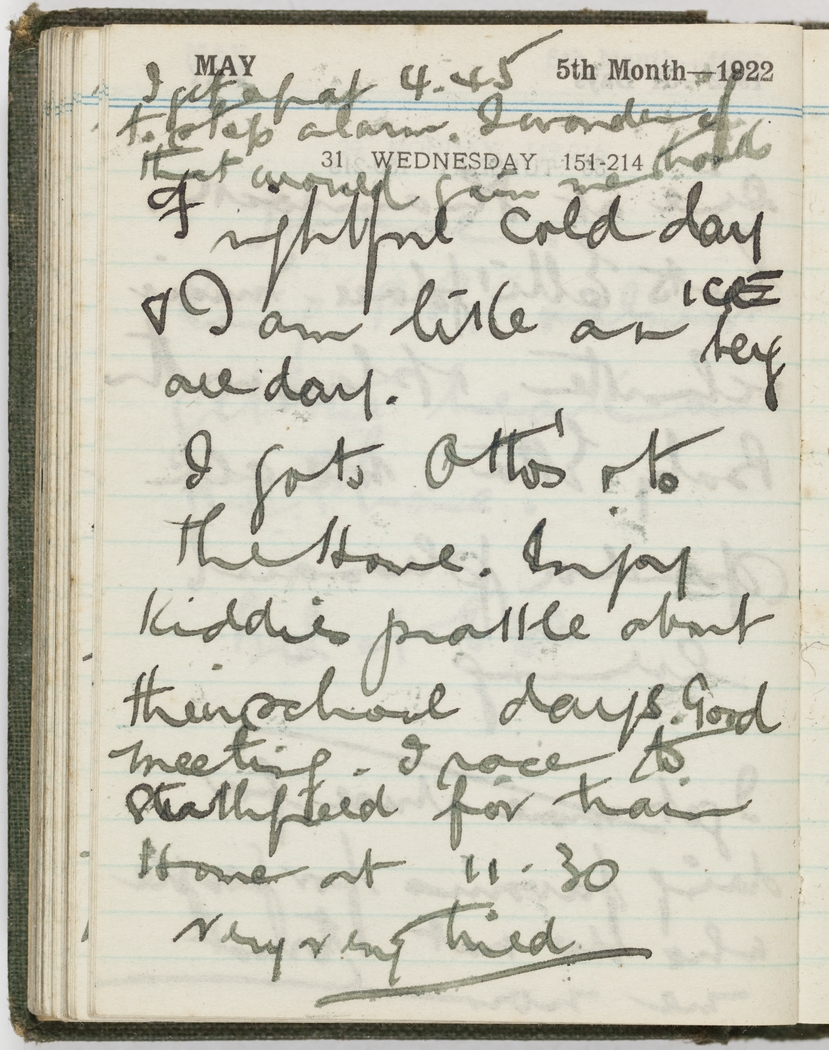 MAY 5th Month—1922
I get up at 4.45
to stop alarm. I wonder if
31 WEDNESDAY 151-214
that would gain me
Frightful cold day
& I am little as an ICE
berg
all day.
I go to Otto's & to
the Home. Enjoy
Kiddies prattle about
their school days. Good
meeting. I race to
Strathfield for train
Home at 11.30
very very tried